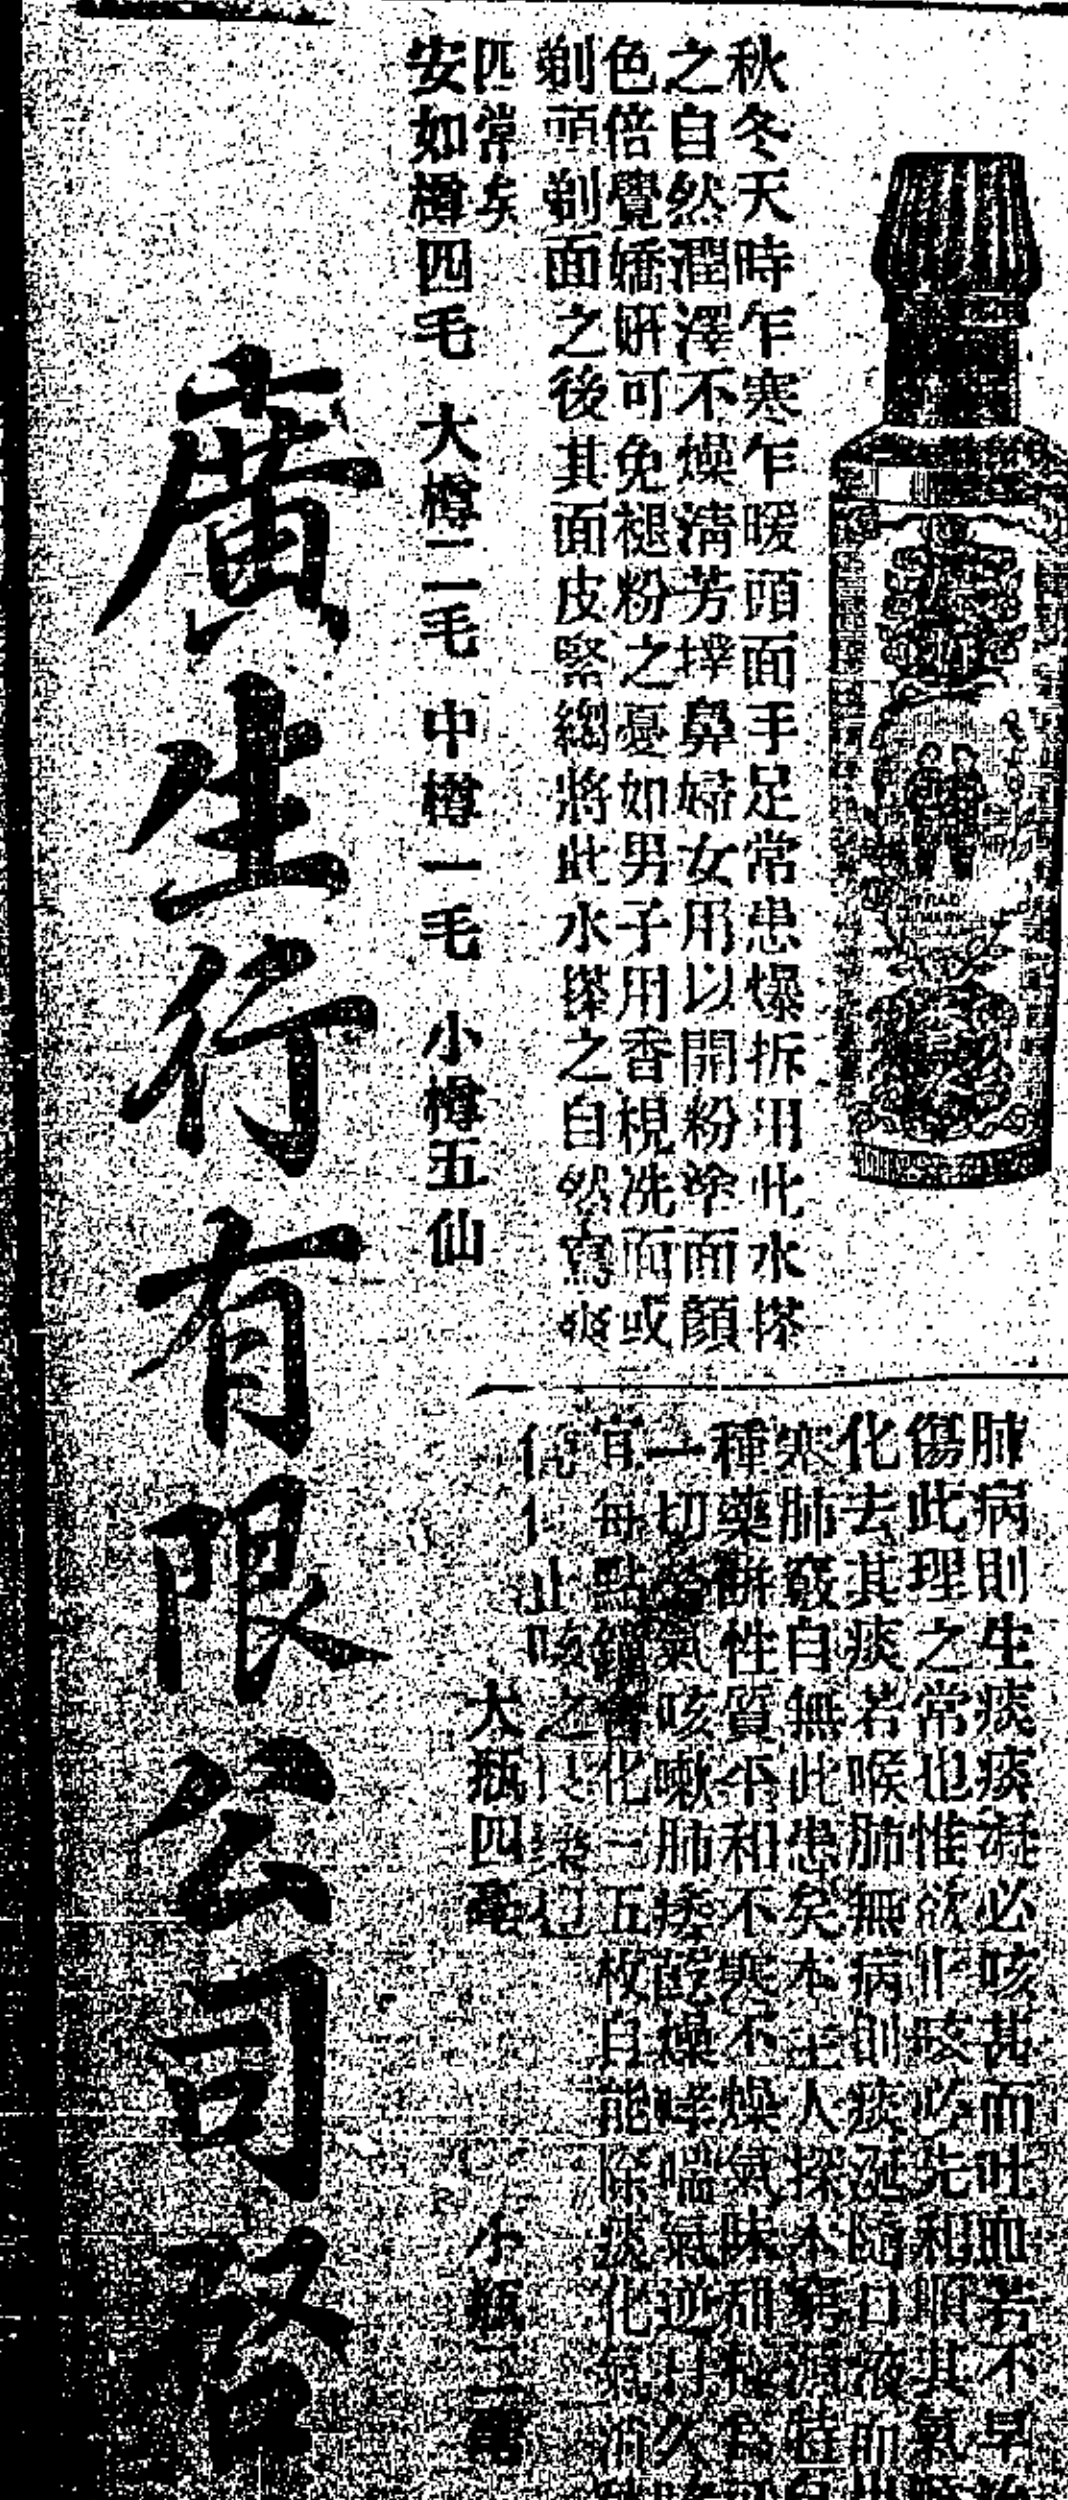 秋冬天時乍寒乍暖頭面手足常患爆拆用此水搽
之自然潤澤不燥清芳撲鼻婦女用以開粉塗面顏
色倍覺嬌妍可免褪粉之憂如男子用香梘洗面或
剃頭剃面之後其面皮緊縐將此水搽之自然爽
匹常矣
安如樽四毛 大樽二毛 中樽一毛 小樽五仙
TRADE MARK
肺病則生痰痰凝必咳甚而吐血若不早
傷此理之常也惟欲止咳必先和順其氣
化去其痰若喉肺無病則痰涎隨日液而
寒肺竅自無此患矣本主人探本窮源
種藥餅性質平和不寒不燥氣味和
一切咳嗽肺痿乾燥哮喘氣逆日久
宜每點鐘含化三五枚自能除痰化氣
止咳之良藥也
大瓶四毫 小瓶二毫
廣生行有限公司啓